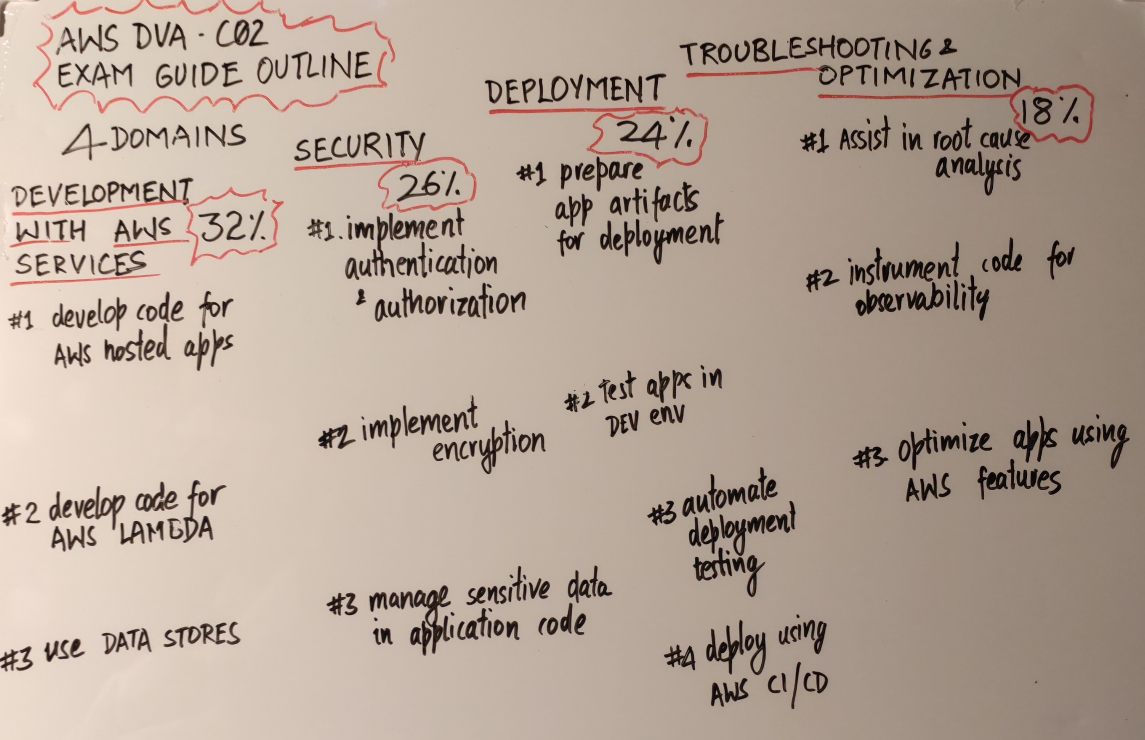 AWS DVA-C02
EXAM GUIDE OUTLINE
4 DOMAINS
DEVELOPMENT
WITH AWS
SERVICES
32%
#1 develop code for
AWS hosted apps
#2 develop code for
AWS LAMBDA
#3 use DATA STORES
SECURITY
26%
#1. implement
authentication
& authorization
#2 implement
encryption
#3 manage sensitive data
in application code
DEPLOYMENT
24%
#1 prepare
app artifacts
for deployment
#2 Test apps in
DEV env
#3 automate
deployment
testing
#4 deploy using
AWS CI/CD
TROUBLESHOOTING &
OPTIMIZATION
18%
#1 Assist in root cause
analysis
#2 instrument code for
observability
#3 optimize apps using
AWS features